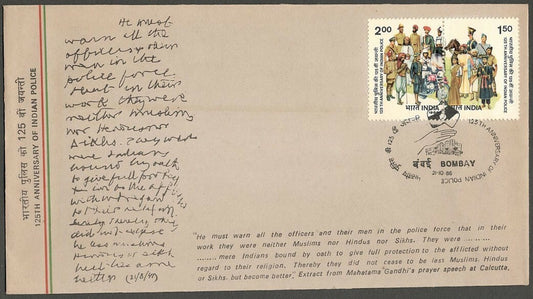 भारतीय पुलिस की 125 वीं जयन्ती
125TH ANNIVERSARY OF INDIAN POLICE
He must
warn all the
officers & their
men in the
police force
that in their
work they were
neither Muslims
nor Hindus nor
Sikhs. They were
mere Indians
bound by oath
to give full protec
tion to the afflic
without regard
to their religion
did not cease to
be less Muslims
Hindus or Sikh
but become
better (21/8/47)
2.00
125TH ANNIVERSARY OF INDIAN POLICE
भारत INDIA
1.50
125TH ANNIVERSARY OF INDIAN POLICE
भारत INDIA
125TH ANNIVERSARY OF INDIAN POLICE
बंबई BOMBAY
21-10-86
"He must warn all the officers and their men in the police force that in their
work they were neither Muslims nor Hindus nor Sikhs. They were .........
......... mere Indians bound by oath to give full protection to the afflicted without
regard to their religion. Thereby they did not cease to be less Muslims. Hindus
or Sikhs but become better." Extract from Mahatama Gandhi's prayer speech at Calcutta.